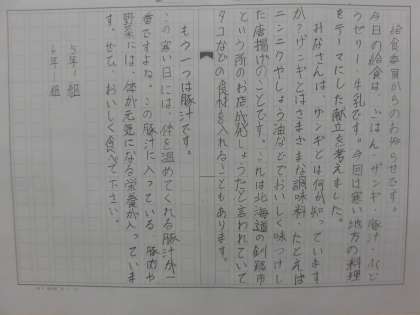 給食委員からのお知らせ
今日の給食は、ごはん・ザンギ・豚汁・ぶど
うゼリー・牛乳です。今回は寒い地方の料理
をテーマにした献立を考えました。
みなさんは、ザンギとは何か知っています
か？ザンギとはさまざまな調味料、たとえば
ニンニクやしょう油などでおいしく味つけし
た唐揚げのことです。これは北海道の釧路市
という所のお店が発しょうだと言われていて
タコなどの食材を入れることもあります。
もう一つは豚汁です。
この寒い日には、体を温めてくれる豚汁が一
番ですよね。この豚汁に入っている豚肉や
野菜には、体が元気になる栄養が入っていま
す。ぜひ、おいしく食べて下さい。
5年1組
6年1組